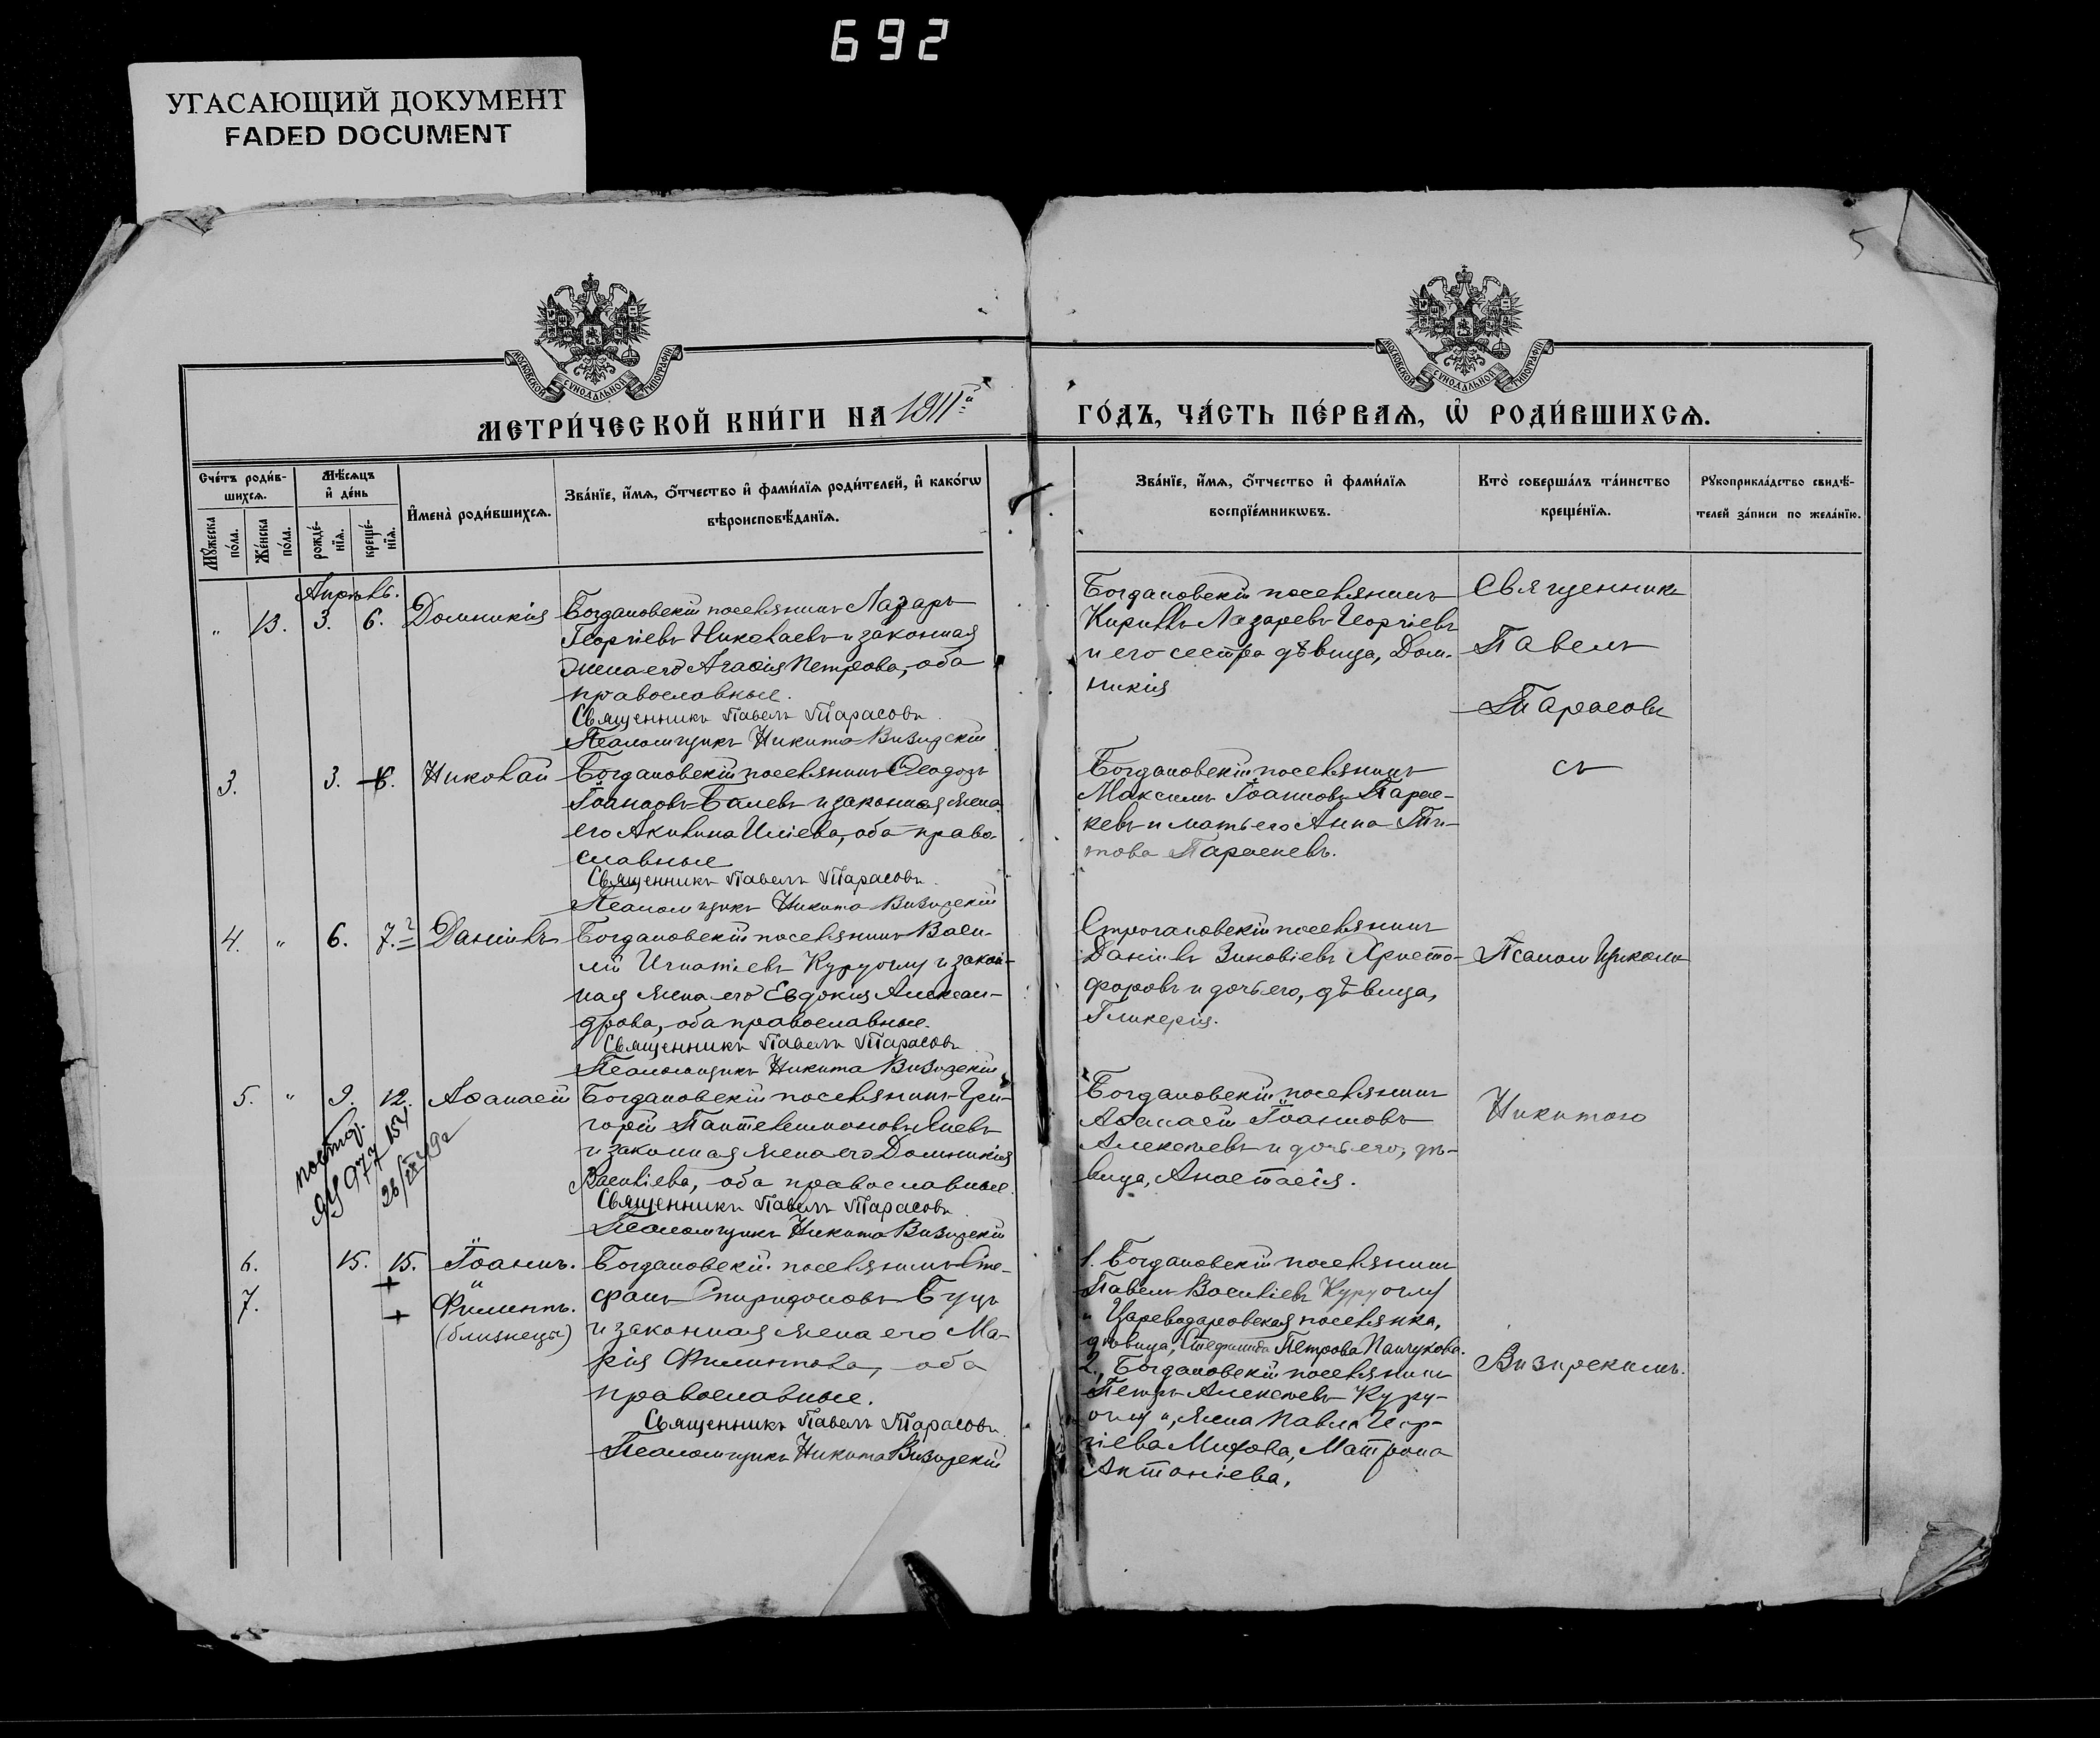 692
УГАСАЮЩИЙ ДОКУМЕНТ
FADED DOCUMENT
5
МОСКОВСКОЙ СѴНОДАЛЬНОЙ ТИПОГРАФІИ
МОСКОВСКОЙ СѴНОДАЛЬНОЙ ТИПОГРАФІИ
МЕТРИ́ЧЕСКОЙ КНИ́ГИ НА 1911й
ГО́ДЪ, ЧА́СТЬ ПЕ́РВАѦ, Ѡ҆ РОДИ́ВШИХСѦ.
Сче́тъ роди́в-
шихсѧ.
Мꙋ́жеска по́ла.
Же́нска по́ла.
Мѣ́сѧцъ
и҆ де́нь
рожде́-
нїѧ.
креще́-
нїѧ.
И҆мена̀ роди́вшихсѧ.
Зва́нїе, и҆́мѧ, ѻ҆́тчество и҆ фами́лїѧ роди́телей, и҆ како́гѡ
вѣроисповѣ́данїѧ.
Зва́нїе, и҆́мѧ, ѻ҆́тчество и҆ фами́лїѧ
воспрїе́мникѡвъ.
Кто̀ соверша́лъ та́инство
креще́нїѧ.
Рꙋкоприкла́дство свидѣ́-
телей за́писи по жела́нїю.
Апрѣль.
" 13. 3. 6. Домникія
Богдановскій поселянинъ Лазарь
Георгіевъ Николаевъ и законная
жена его Агафія Петрова, оба
православные.
Священникъ Павелъ Тарасовъ
Псаломщикъ Никита Визирскій
Богдановскій поселянинъ
Кириллъ Лазаревъ Георгіевъ
и его сестра дѣвица, Дом-
никія
Священникъ
Павелъ
Тарасовъ
3. 3. 6. Николай
Богдановскій поселянинъ Ѳеодоръ
Іоанновъ и законная жена
его Акилина Иліева, оба право-
славные
Священникъ Павелъ Тарасовъ
Псаломщикъ Никита Визирскій
Богдановскій поселянинъ
Максимъ Іоанновъ Парас-
кевъ и мать его Анна Ти-
това Параскевъ.
съ
4. " 6. 7. Даніилъ
Богдановскій поселянинъ Васи-
лій Игнатіевъ Куруоглу и закон-
ная жена его Евдокія Алексан-
дрова, оба православные.
Священникъ Павелъ Тарасовъ
Псаломщикъ Никита Визирскій
Строгановскій поселянинъ
Даніилъ Зиновіевъ Христо-
форовъ и дочь его, дѣвица,
Гликерія.
Псаломщикомъ
5. " 9. 12. Аѳанасій
Богдановскій поселянинъ Гри-
горій Пантелеимоновъ
и законная жена его Домникія
Васильева, оба православные.
Священникъ Павелъ Тарасовъ
Псаломщикъ Никита Визирскій
Богдановскій поселянинъ
Аѳанасій Іоанновъ
Алексѣевъ и дочь его, дѣ-
вица, Анастасія.
Никитою
6. 15. 15. Іоаннъ.
7. Филиппъ.
(близнецы)
Богдановскій поселянинъ Сте-
фанъ Спиридоновъ Буцъ
и законная жена его Ма-
рія Филиппова, оба
православные.
Священникъ Павелъ Тарасовъ
Псаломщикъ Никита Визирскій
1. Богдановскій поселянинъ
Павелъ Васильевъ Куруоглу
и Цареводаровская поселянка,
дѣвица, Стефанида Петрова Панчукова.
2., Богдановскій поселянинъ
Петръ Алексѣевъ Куру-
оглу и, жена Павла Геор-
гіева Митова, Матрона
Антоніева.
Визирскимъ.